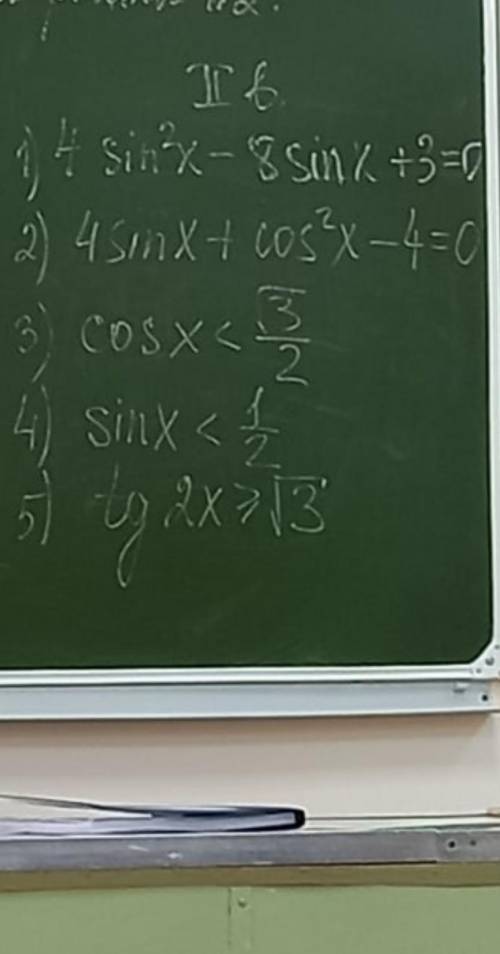 II в.
1) 4 sin²x - 8 sinx + 3 = 0
2) 4 sinx + cos²x - 4 = 0
3) cos x < √3/2
4) sin x < 1/2
5) tg 2x ≥ √3